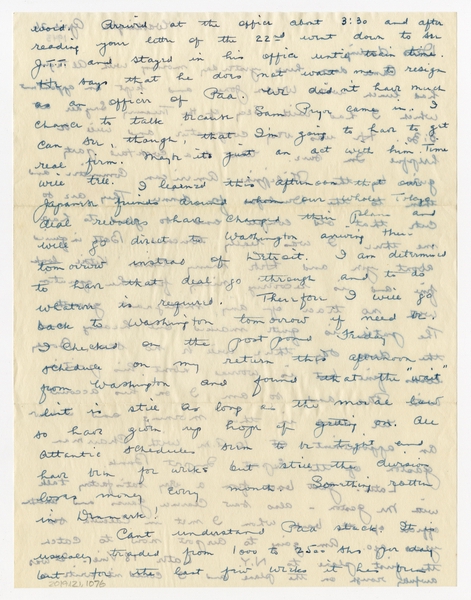 Arrived at the office about 3:30 and after
reading your letter of the 22nd went down to see
J.T.T. and stayed in his office until
He says that he does not want me to resign
as an officer of Paa. We did not have much
chance to talk because Sam Pryor came in. I
can see, though, that I'm going to have to get
real firm. Maybe its just an act with him. Time
will tell. I learned this afternoon that our
Japanese friends around whom our whole Tokyo
deal revolves have changed their plans and
will go direct to Washington arriving there
tomorrow instead of Detroit. I am determined
to have that deal go through and to do
whatever is required. Therefore I will go
back to Washington tomorrow if need be.
I checked on the postponed Friday
schedule on my return this afternoon
from Washington and found that the "wait"
list is still as long as the moral law
so have given up hope of getting on. All
Atlantic schedules seem to be tight and
have been for weeks but still the division
loses money every month. Something rotten
in Denmark!
Cant understand Paa stock. It is
usually traded from 1000 to 2500 shs. per day
but for the last few weeks it has
2019.121.1076